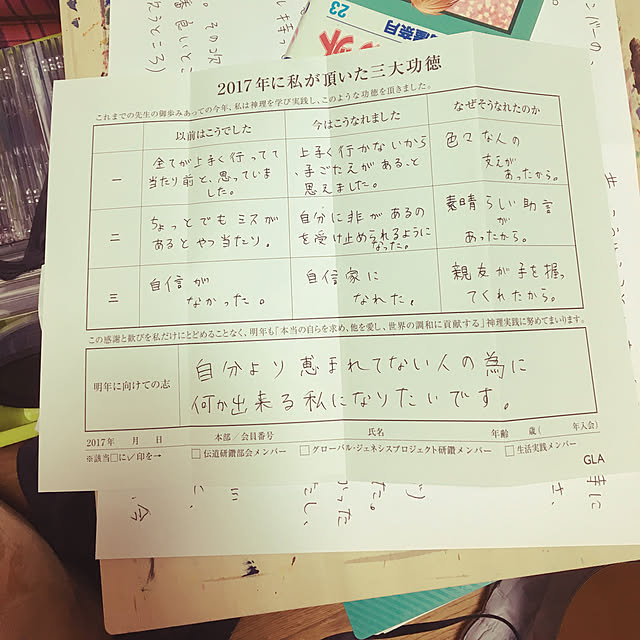 2017年に私が頂いた三大功徳
これまでの先生の御歩みあっての今年、私は神理を学び実践し、このような功徳を頂きました。
以前はこうでした
今はこうなれました
なぜそうなれたのか
一
全てが上手く行ってて
当たり前と、思っていま
した。
上手く行かないから
、手ごたえがあること
思えました。
色々な人の
支えが
あったから。
二
ちょっとでもミスが
あるとやつ当たり。
自分に非があるの
を受け止められるように
なった。
素晴らしい助言
が
あったから。
三
自信が
なかった。
自信家に
なれた。
親友が手を握っ
てくれたから。
この感謝と歓びを私だけにとどめることなく、明年も「本当の自らを求め、他を愛し、世界の調和に貢献する」神理実践に努めてまいります。
明年に向けての志
自分より恵まれてない人の為に
何か出来る私になりたいです。
2017年 月 日 本部/会員番号 氏名 年齢 歳( 年入会)
※該当□に✓印を→ □伝道研鑽部会メンバー □グローバル・ジェネシスプロジェクト研鑽メンバー □生活実践メンバー
GLA
23